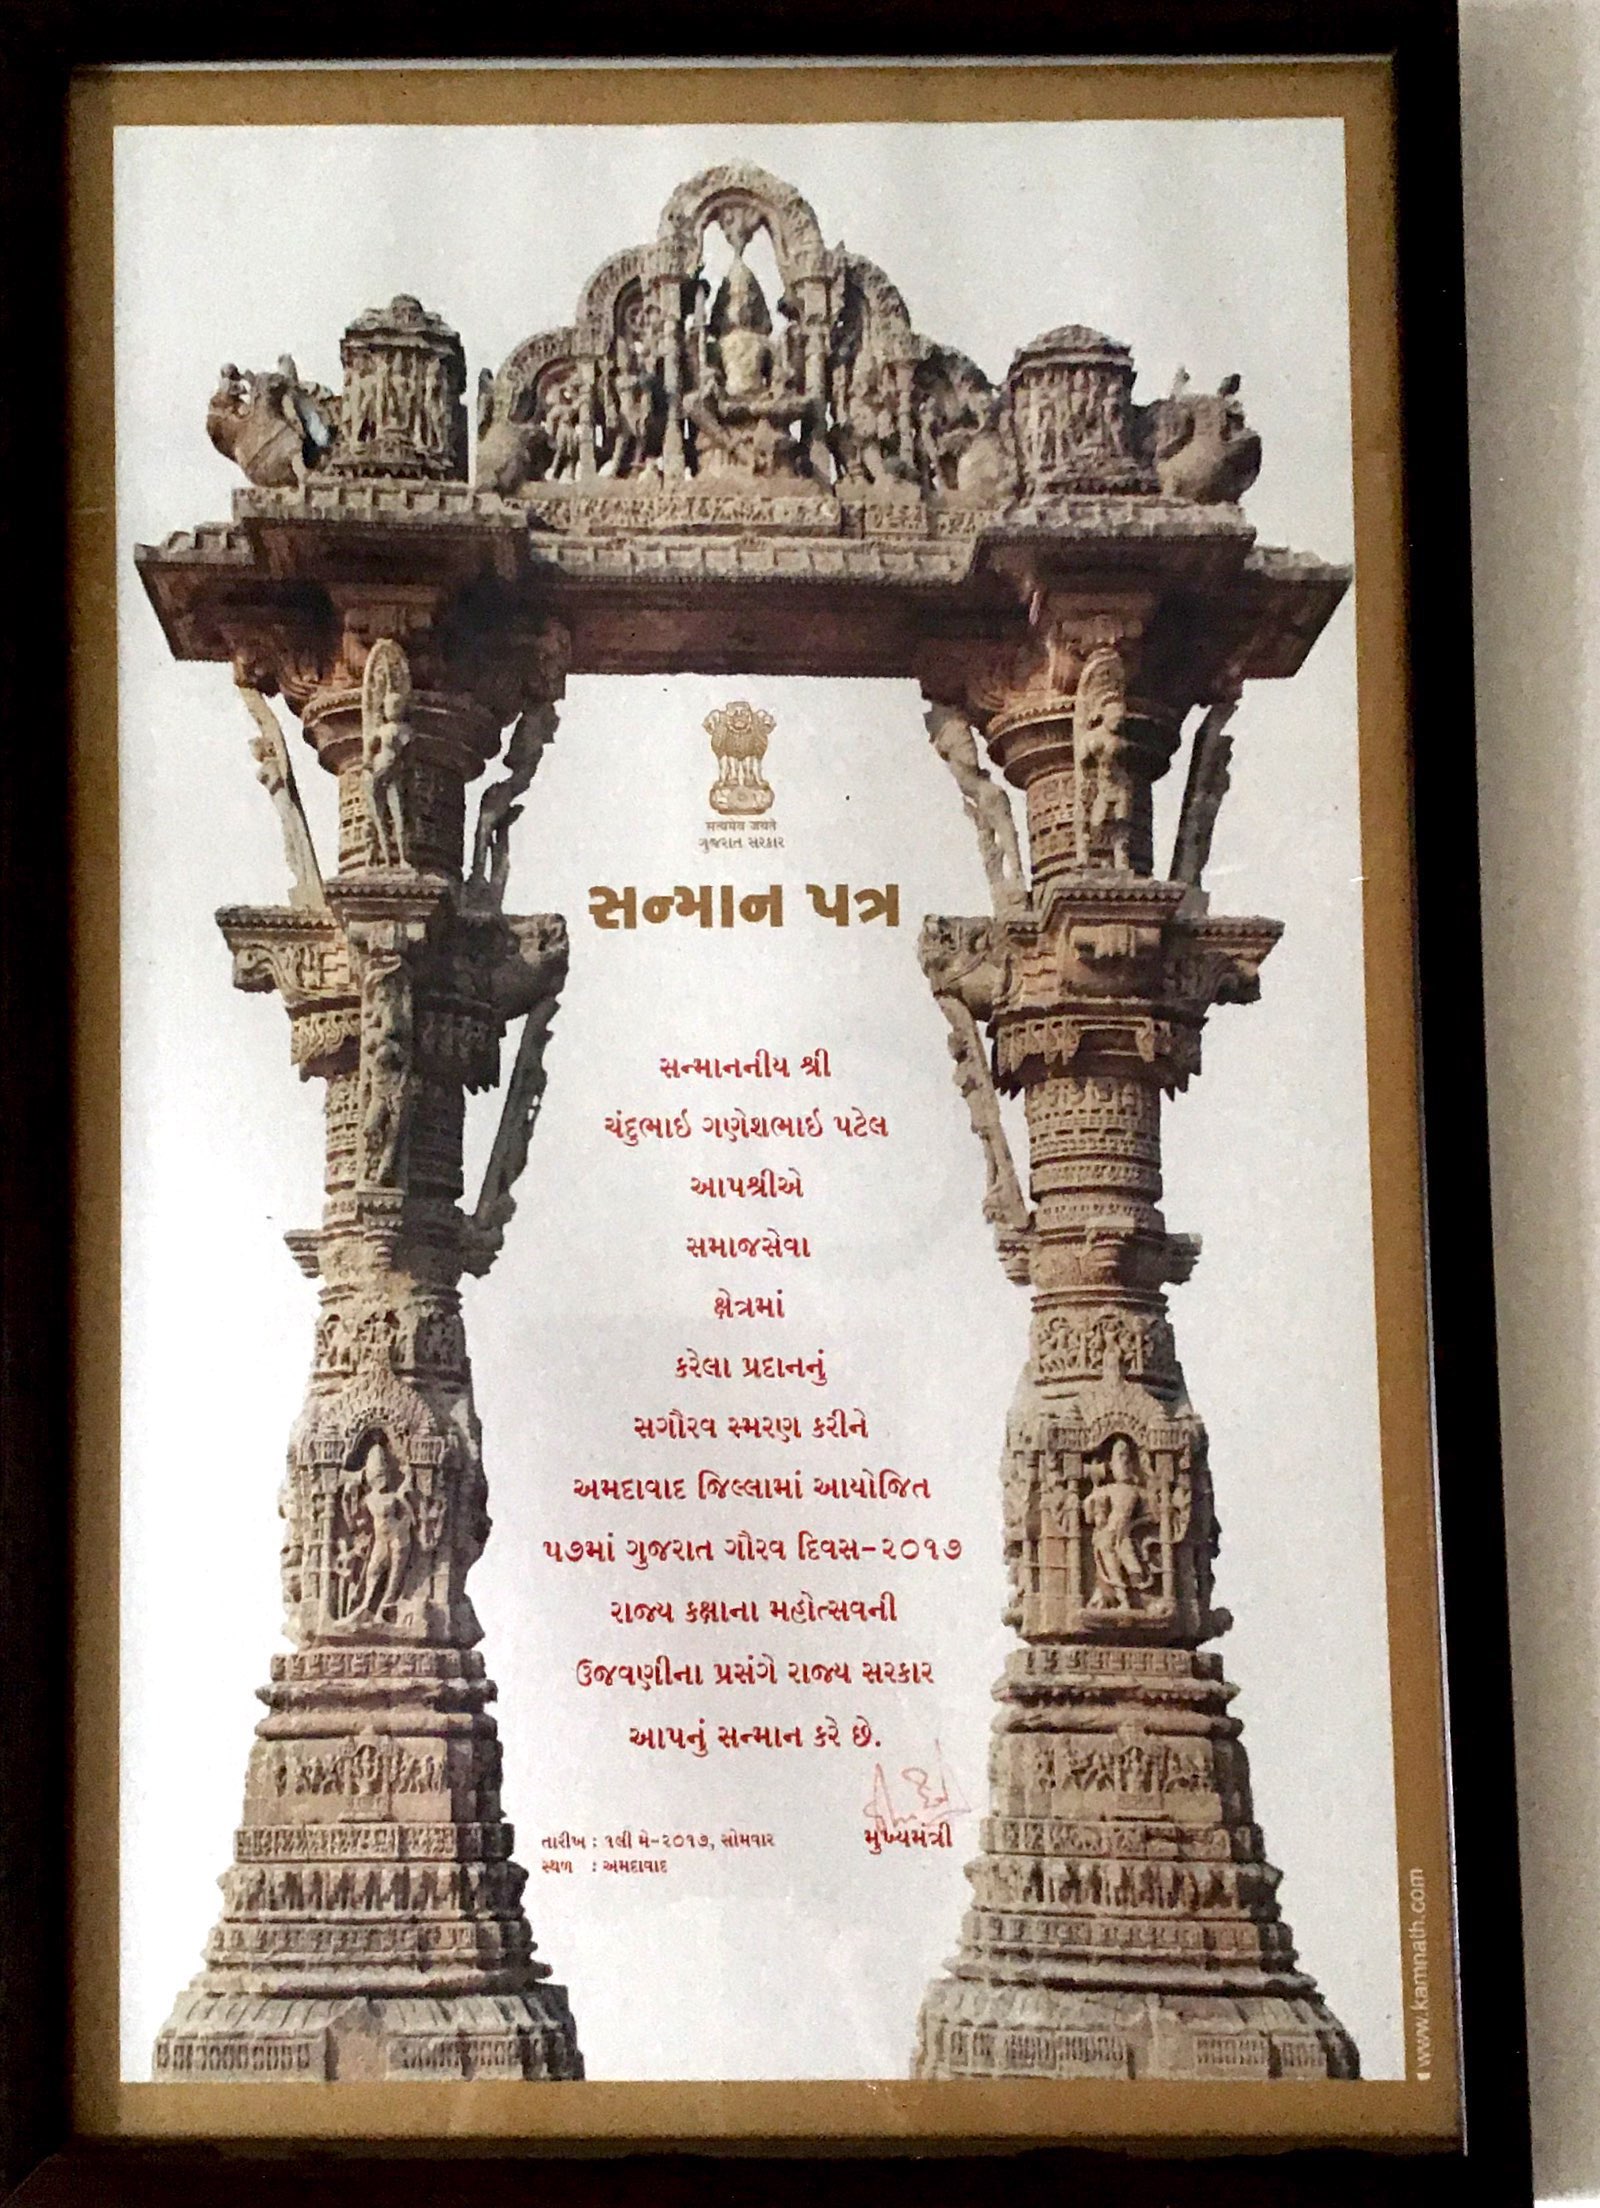 सत्यमेव जयते
ગુજરાત સરકાર
સન્માન પત્ર
સન્માનનીય શ્રી
ચંદુભાઇ ગણેશભાઇ પટેલ
આપશ્રીએ
સમાજસેવા
ક્ષેત્રમાં
કરેલા પ્રદાનનું
સગૌરવ સ્મરણ કરીને
અમદાવાદ જિલ્લામાં આયોજિત
૫૭માં ગુજરાત ગૌરવ દિવસ-૨૦૧૭
રાજ્ય કક્ષાના મહોત્સવની
ઉજવણીના પ્રસંગે રાજ્ય સરકાર
આપનું સન્માન કરે છે.
મુખ્યમંત્રી
તારીખ : ૧લી મે-૨૦૧૭, સોમવાર
સ્થળ : અમદાવાદ
www.kamnath.com